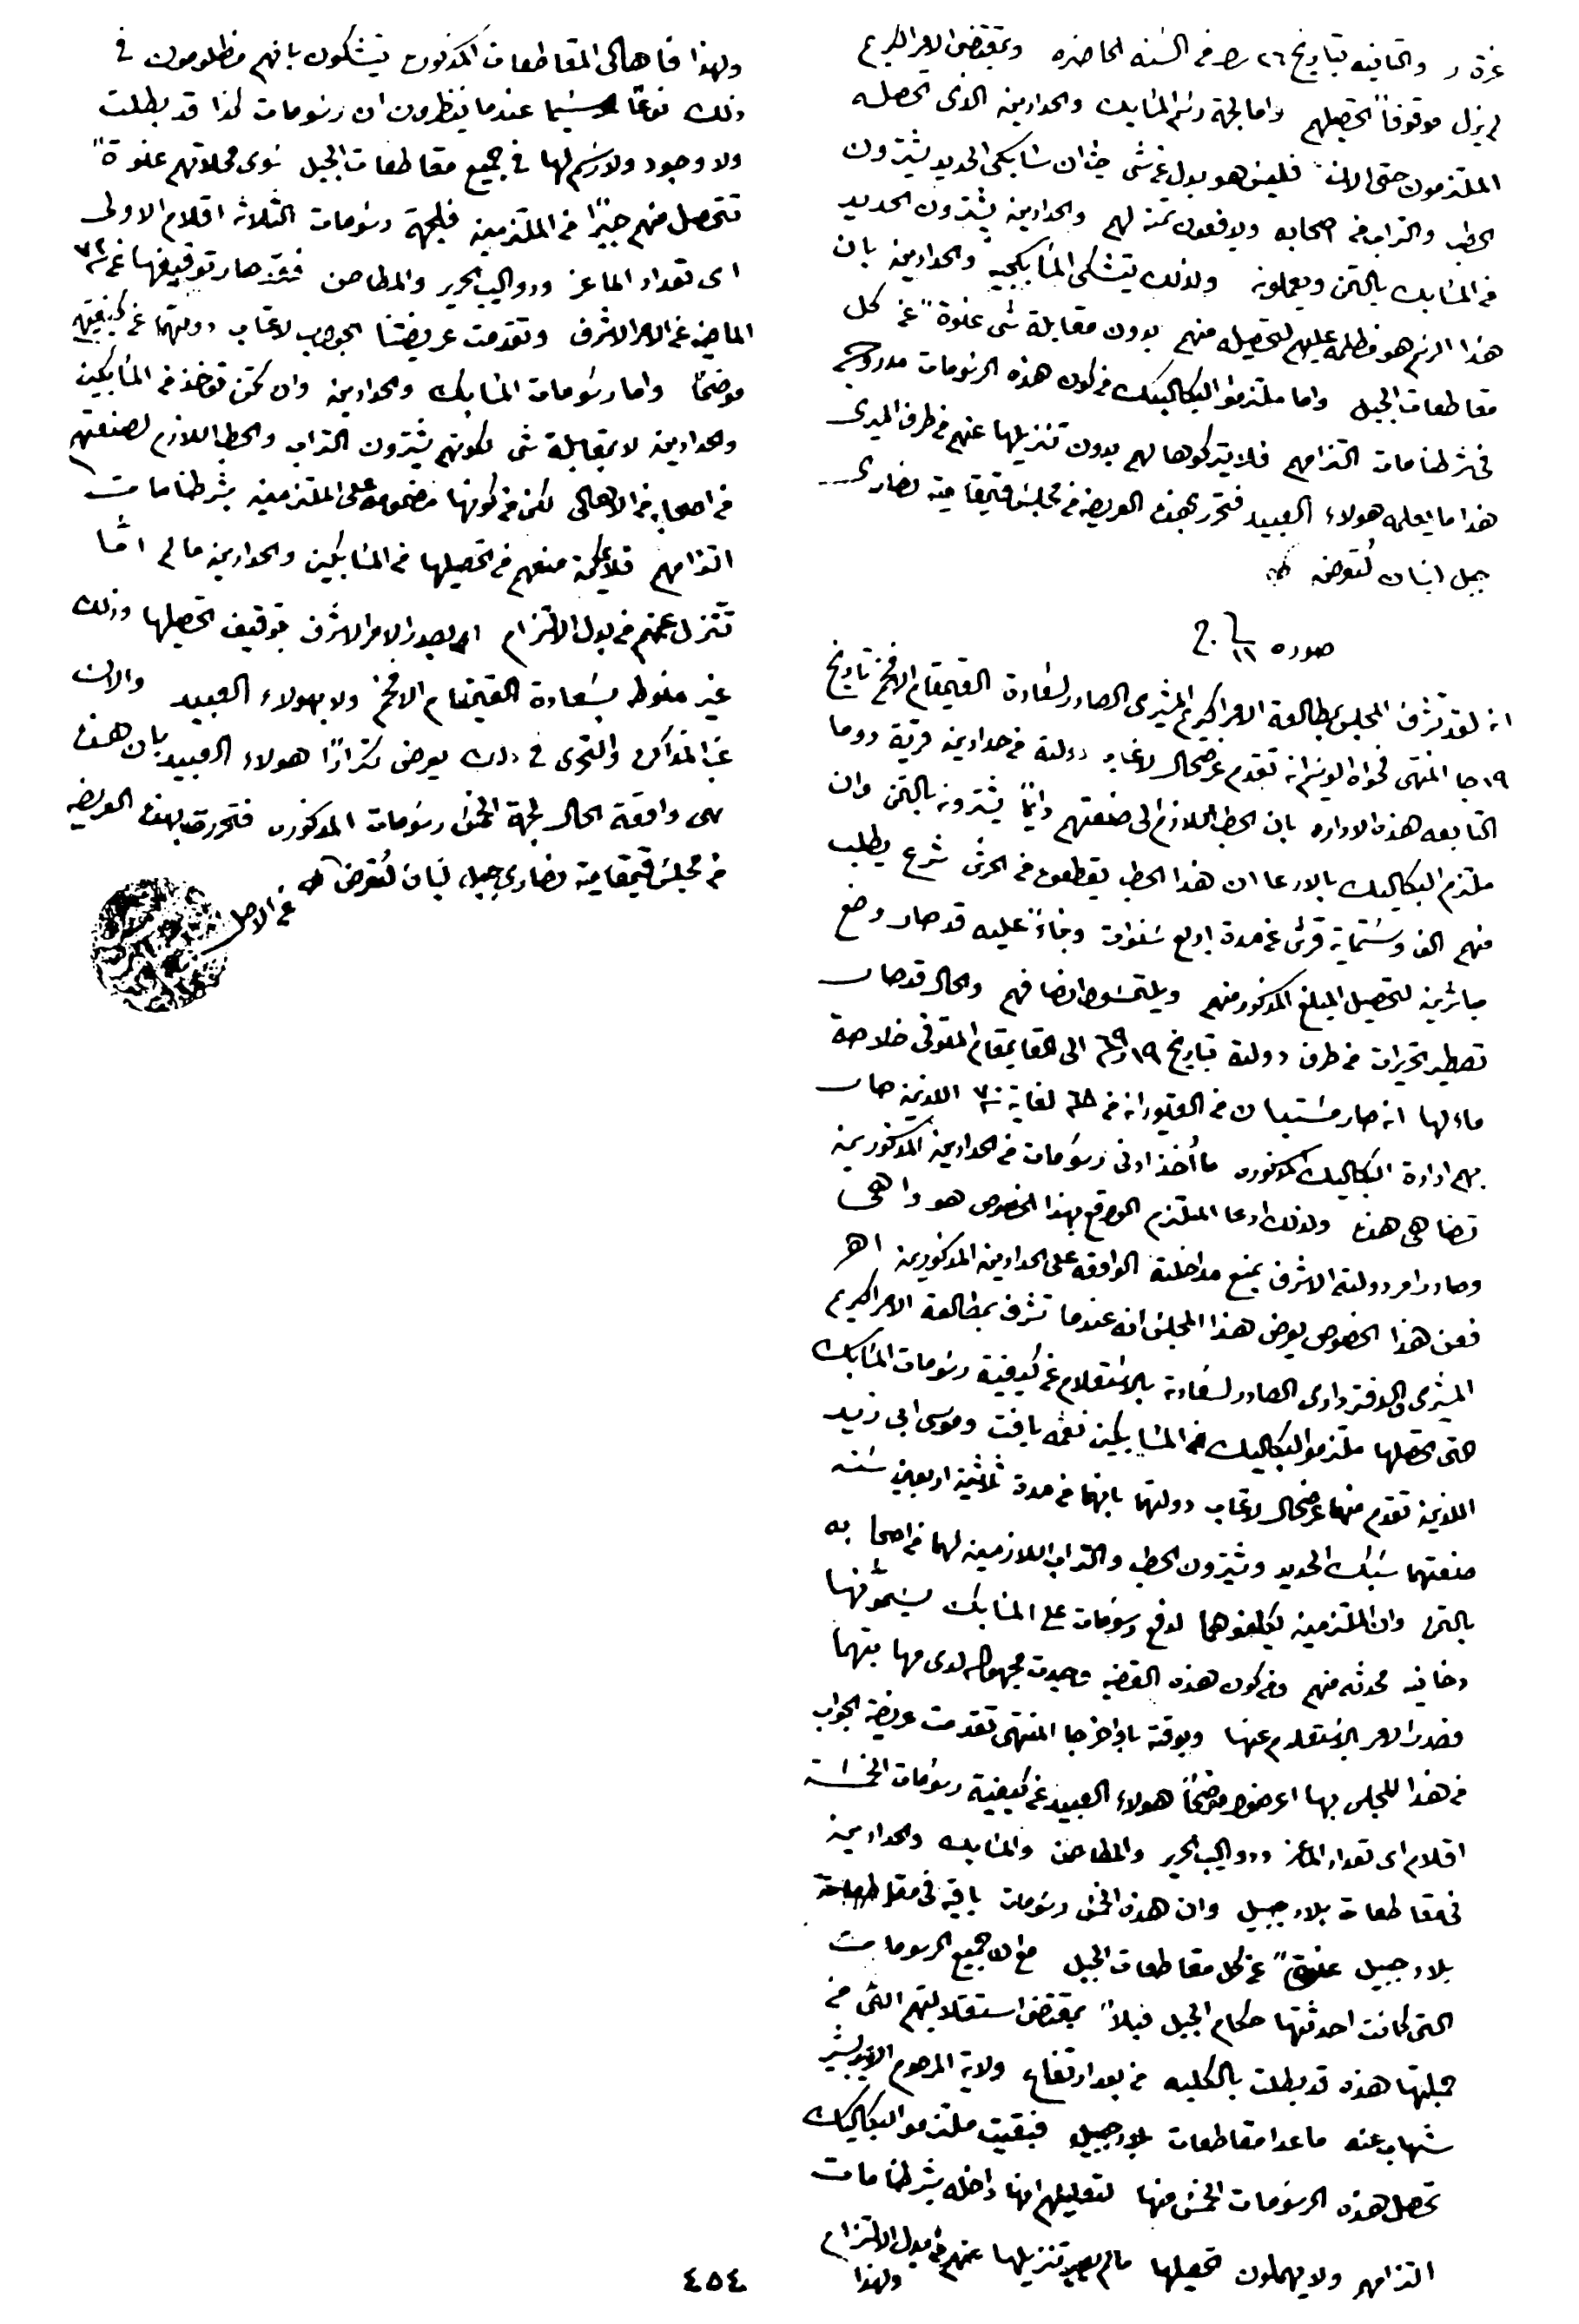 غرة ر والثانيه بتاريخ ٢٦ ص من السنه الحاضره وبمقتضى الامر الكريم
لم يزل موقوفاً تحصيلهم واما لجهة رسم المسابك والحدادين الذى تحصله
الملتزمون حتى الان فليس هو بدل عن شى حيث ان سابكى الحديد يشترون
الحطب والتراب من اصحابه ويدفعون ثمنه لهم والحدادين يشترون الحديد
من المسابك بالثمن ويعملونه ولذلك يتشكى المسابكجيه والحدادين بان
هذا الرسم هو مظلمه عليهم لتحصيله منهم بدون مقابلة شى عنوةً عن كل
مقاطعات الجبل واما ملتزموا البكاليك من كون هذه الرسومات مدروجه
فى شرطنامات التزامهم فلا يتركوها لهم بدون تنزيلها عنهم من طرف الميرى
هذا ما يعلمه هولاء العبيد فتحرر بهذه العريضه من مجلس قيمقامية نصارى
جبل لبنان لتعرض
صوره
انه لقد تشرف المجلس بمطالعة الامر الكريم المشيرى الصادر لسعادة القيمقام الافخم تاريخ
١٩ جا المنتهى فحواه الوسيم انه تقدم عرضحال لاعتاب دولته من حدادين قرية دوما
التابعه هذه الاداره بان الحطب اللازم الى صنعتهم دايماً يشترونه بالثمن وان
ملتزم البكاليك بالادعا ان هذا الحطب يقطعوه من الحرش شرع يطلب
منهم الف وستماية قرش عن مدة اربع سنوات وبناءً عليه قد صار وضع
مباشرين لتحصيل المبلغ المذكور منهم ويلتمسوا انصافهم والحال قد صار
تصطير تحريرات من طرف دولته بتاريخ ١٩ الى القايمقام المتوفى خلاصة
مادلها انه صار مستبان من القيود انه من ٦٨ لغاية ٧٠ اللذين صار
بهم ادارة البكاليك المذكوره ما أخذ ادنى رسومات من الحدادين المذكورين
تضاهى هذه ولذلك ادعا الملتزم الواقع بهذا الخصوص هو واهى
وصادر امر دولته الاشرف بمنع مداخلته الواقعه على الحدادين المذكورين اهـ
فعن هذا الخصوص يعرض هذا المجلس انه عندما تشرف بمطالعة الامر الكريم
المشيرى والدفتردارى الصادر لسعادته بالاستعلام عن كيفية رسومات المسابك
التى تحصلها ملتزموا البكاليك من المسابكين نعمه يافت وموسى ابى زيد
اللذين تقدم منهما عرضحال لاعتاب دولتهما بانهما من مدة ثلاثين اربعين سنه
صنعتهما سبك الحديد ويشترون الحطب والتراب اللازمين لهما من اصحابه
بالثمن وان الملتزمين يكلفوهما لدفع رسومات على المسابك يسمونها
دخانيه محدثه منهم ومن كون هذه القضيه وجدت مجهوله لدى مهابتهما
فصدر الامر بالاستعلام عنها وبوقته باواخر جا المنتهى تقدمت عريضة الجواب
من هذا المجلس بها اعرضوا موضحاً هولاء العبيد عن كيفية رسومات الخمسة
اقلام اى تعداد الماعز ودواليب الحرير والمطاحن والمسابك والحدادين
فى مقاطعات بلاد جبيل وان هذه الخمس رسومات باقيه فى مقاطعات
بلاد جبيل عنوةً عن كل مقاطعات الجبل مع ان جميع الرسومات
التى كانت احدثتها حكام الجبل قبلاً بمقتضى استقلاليتهم التى من
جملتها هذه قد بطلت بالكليه من بعد ارتفاع ولاية المرحوم الامير بشير
شهاب عنه ماعدا مقاطعات بلاد جبيل فبقيت ملتزموا البكاليك
تحصل هذه الرسومات الخمس منها لتعليلهم انها داخله بشرطنامات
التزامهم ولا يهملون تحصيلها مالم يصير تنزيلها عنهم من بدل الالتزام
ولهذا
ولهذا فاهالى المقاطعات المذكوره يتشكون بانهم مظلومون فى
ذلك نوعاً سيما عندما ينظرون ان رسومات كذا قد بطلت
ولا وجود ولا رسم لها فى جميع مقاطعات الجبل سوى محلاتهم عنوةً
تتحصل منهم جبراً من الملتزمين فلجهة رسومات الثلاثه اقلام الاولى
اى تعداد الماعز ودواليب الحرير والمطاحن فقد صار توقيفها عن سنة ٧٢
الماضيه عن الامر الاشرف وتقدمت عريضتنا الجواب لاعتاب دولتهما عن كيفيتهم
موضحاً واما رسومات المسابك والحدادين وان كمن توخذ من المسابكين
والحدادين لا بمقابلة شى لكونهم يشترون التراب والحطب اللازم لصنعتهم
من اصحابه من الاهالى لكن من كونها مضمومه على الملتزمين بشرطنامات
التزامهم فلا يمكن منعهم من تحصيلها من المسابكين والحدادين مالم اما
تتنزل عنهم من بدل الالتزام او يصدر الامر الاشرف بتوقيف تحصيلها وذلك
غير منوط بسعادة القيمقام الافخم ولا بهولاء العبيد والان
غب المذاكره والتحرى فى ذلك يعرض تكراراً هولاء العبيد بان هذه
هى واقعة الحال لجهة الخمس رسومات المذكوره فتحررت بهذه العريضه
من مجلس قيمقامية نصارى جبل لبنان لتعرض
عن الاصل
٤٥٤